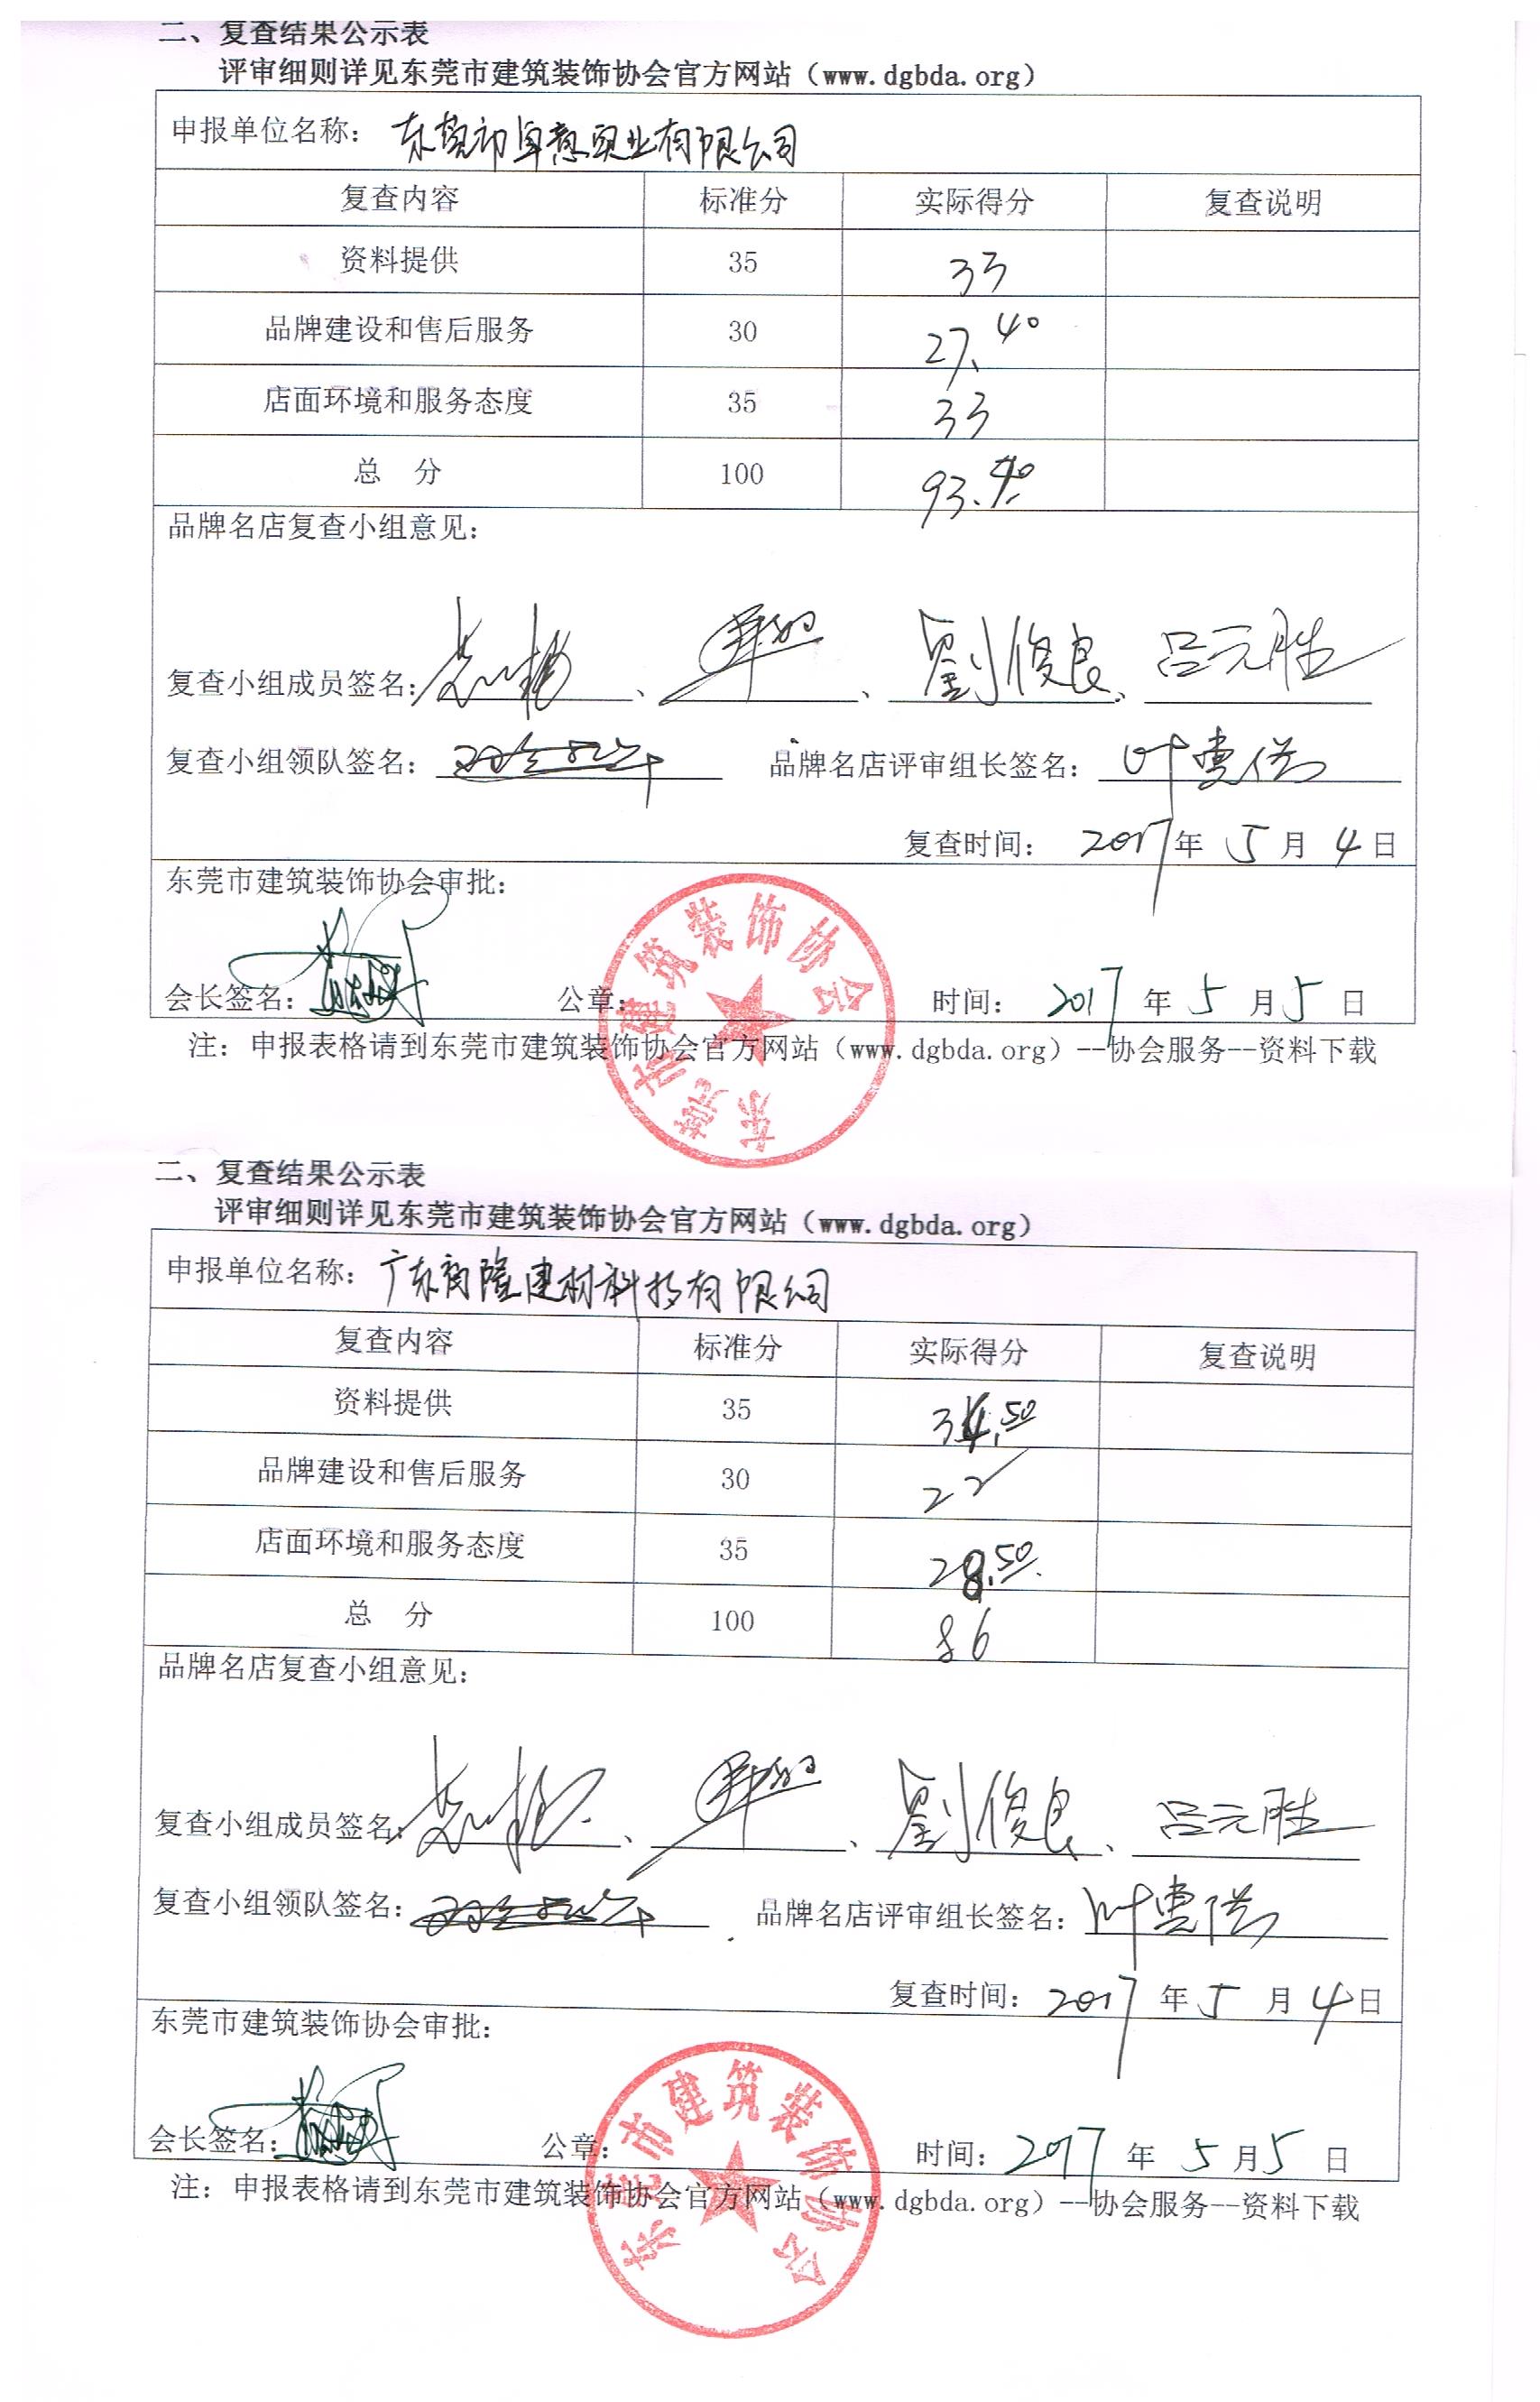 二、复查结果公示表
评审细则详见东莞市建筑装饰协会官方网站（www.dgbda.org）
申报单位名称： 东莞市卓意实业有限公司
复查内容 标准分 实际得分 复查说明
资料提供 35 33
品牌建设和售后服务 30 27.40
店面环境和服务态度 35 33
总 分 100 93.40
品牌名店复查小组意见：
复查小组成员签名： 、 、 劉俊良、 吕元胜
复查小组领队签名： 品牌名店评审组长签名： 叶惠洪
复查时间： 2017 年 5 月 4 日
东莞市建筑装饰协会审批：
会长签名： 公章： 时间： 2017 年 5 月 5 日
东莞市建筑装饰协会
注：申报表格请到东莞市建筑装饰协会官方网站（www.dgbda.org）--协会服务--资料下载
二、复查结果公示表
评审细则详见东莞市建筑装饰协会官方网站（www.dgbda.org）
申报单位名称： 广东 隆建材科技有限公司
复查内容 标准分 实际得分 复查说明
资料提供 35 3 .50
品牌建设和售后服务 30 22
店面环境和服务态度 35 28.50
总 分 100 86
品牌名店复查小组意见：
复查小组成员签名： 、 、 劉俊良、 吕元胜
复查小组领队签名： 品牌名店评审组长签名： 叶惠洪
复查时间： 2017 年 5 月 4 日
东莞市建筑装饰协会审批：
会长签名： 公章： 时间： 2017 年 5 月 5 日
东莞市建筑装饰协会
注：申报表格请到东莞市建筑装饰协会官方网站（www.dgbda.org）--协会服务--资料下载